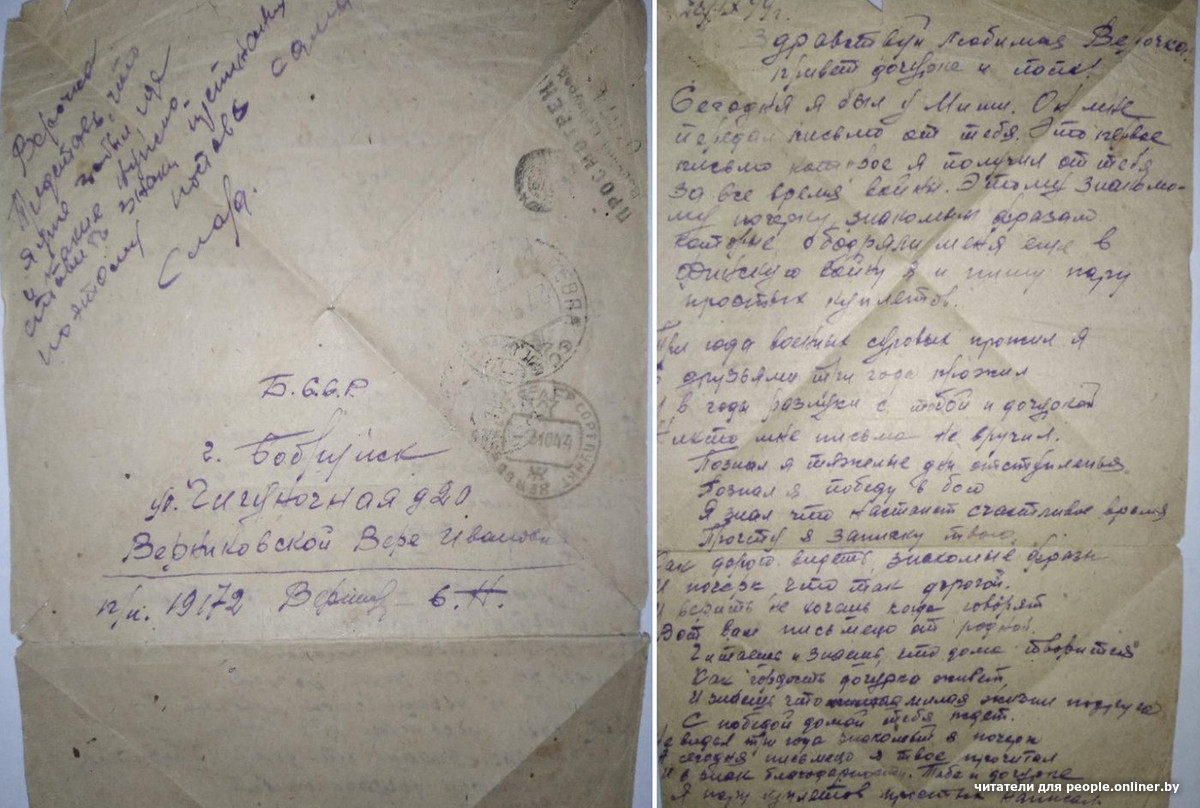 Верочка
Представь, что
я уже забыл где
и какие нужно
ставить знаки
поэтому поставь
сама
Слава.
ПРОСМОТРЕНО
Б.С.С.Р.
г. Бобруйск
ул. Чигуночная д 20
Верниковской Вере Ивановне
п/п. 19172
Здравствуй любимая Верочка,
привет дочурке и папе!
Сегодня я был у Миши. Он мне
передал письмо от тебя. Это первое
письмо которое я получил от тебя
за все время войны. Этому знакомо-
му почерку знакомым образам
которые ободряли меня еще в
финскую войну я и пишу пару
простых куплетов.
Три года военных суровых прожил я
с друзьями три года прожил
И в годы разлуки с тобой и дочуркой
Никто мне письма не вручил.
Познал я тяжелые дни отступленья
Познал я победу в бою
Я знал что настанет счастливое время
Прочту я записку твою.
Как дорого видеть знакомые образы
И почерк что так дорогой.
И верить не хочешь когда говорят
Вот вам письмецо от родной.
Читаешь и знаешь, что дома творится
Как дочурка живет,
И знаешь что милая жизни подруга
С победой домой тебя ждет.
Не видел три года знакомый я почерк
А сегодня письмецо я твое прочитал
И в знак благодарности. Тебе и дочурке
Я пару куплетов простых написал
читатели для people.onliner.by